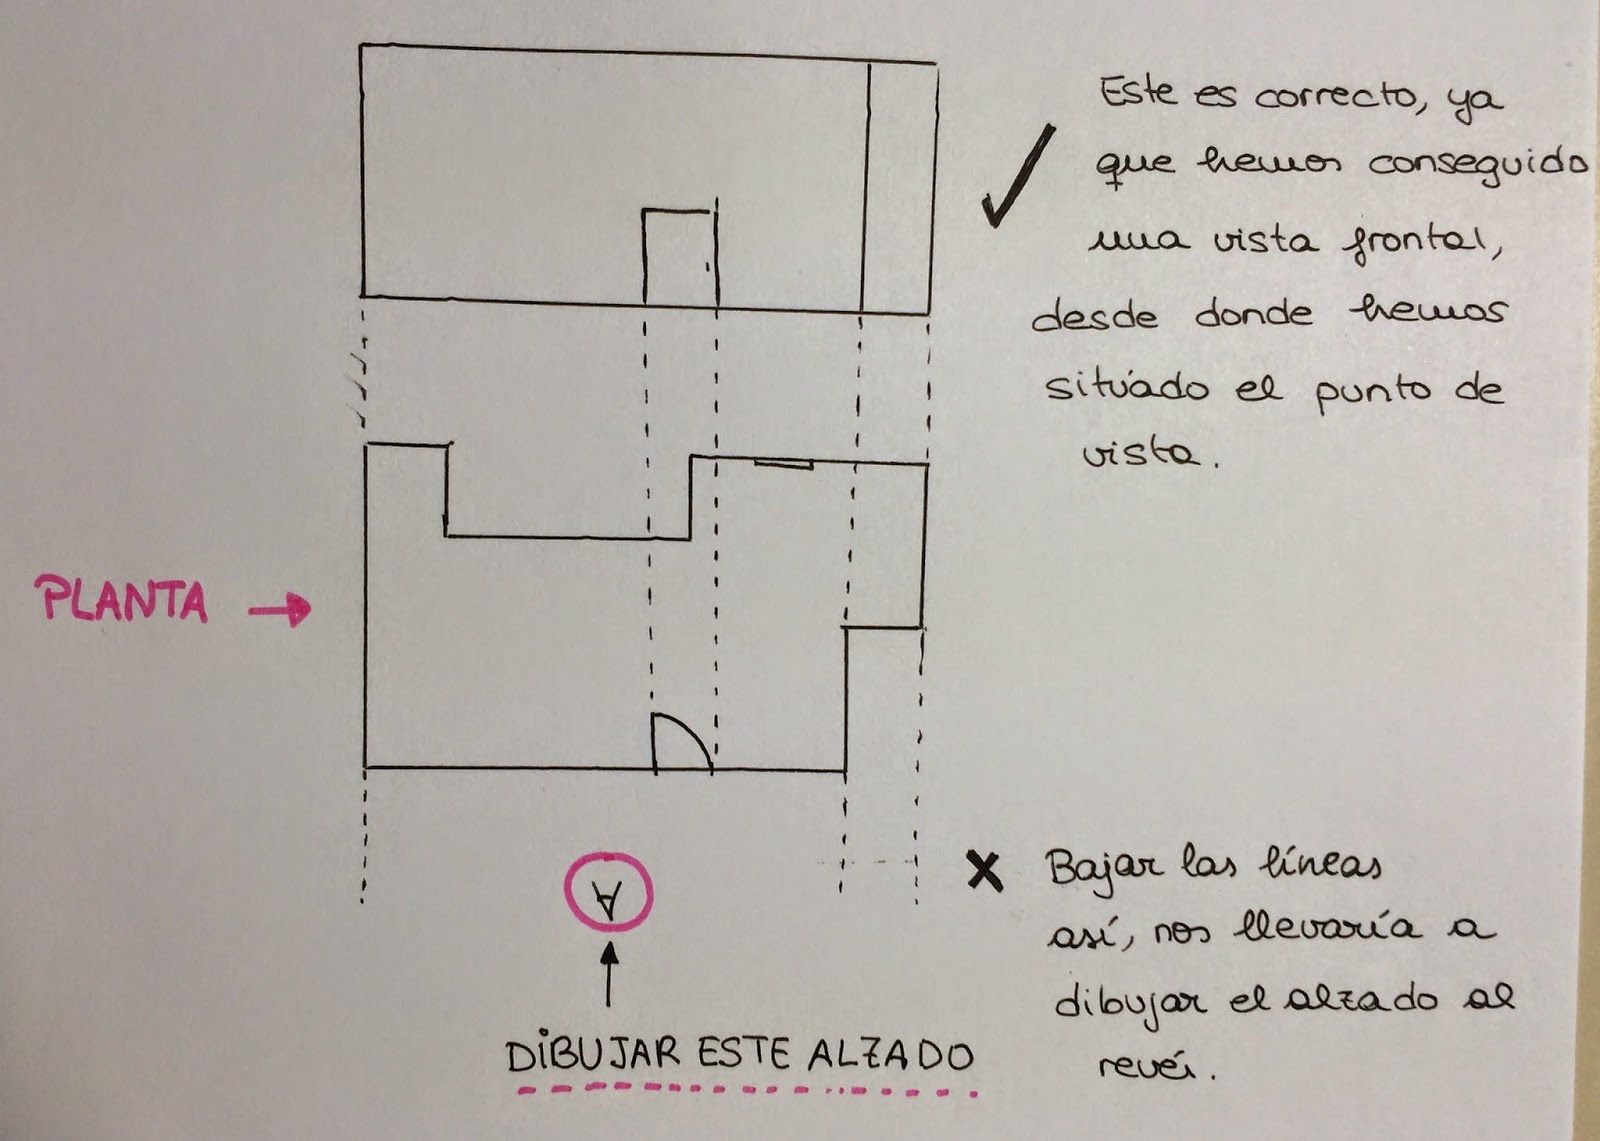 Este es correcto, ya
que hemos conseguido
una vista frontal,
desde donde hemos
situado el punto de
vista.
PLANTA
A
DIBUJAR ESTE ALZADO
Bajar las líneas
así, nos llevaría a
dibujar el alzado al
revés.